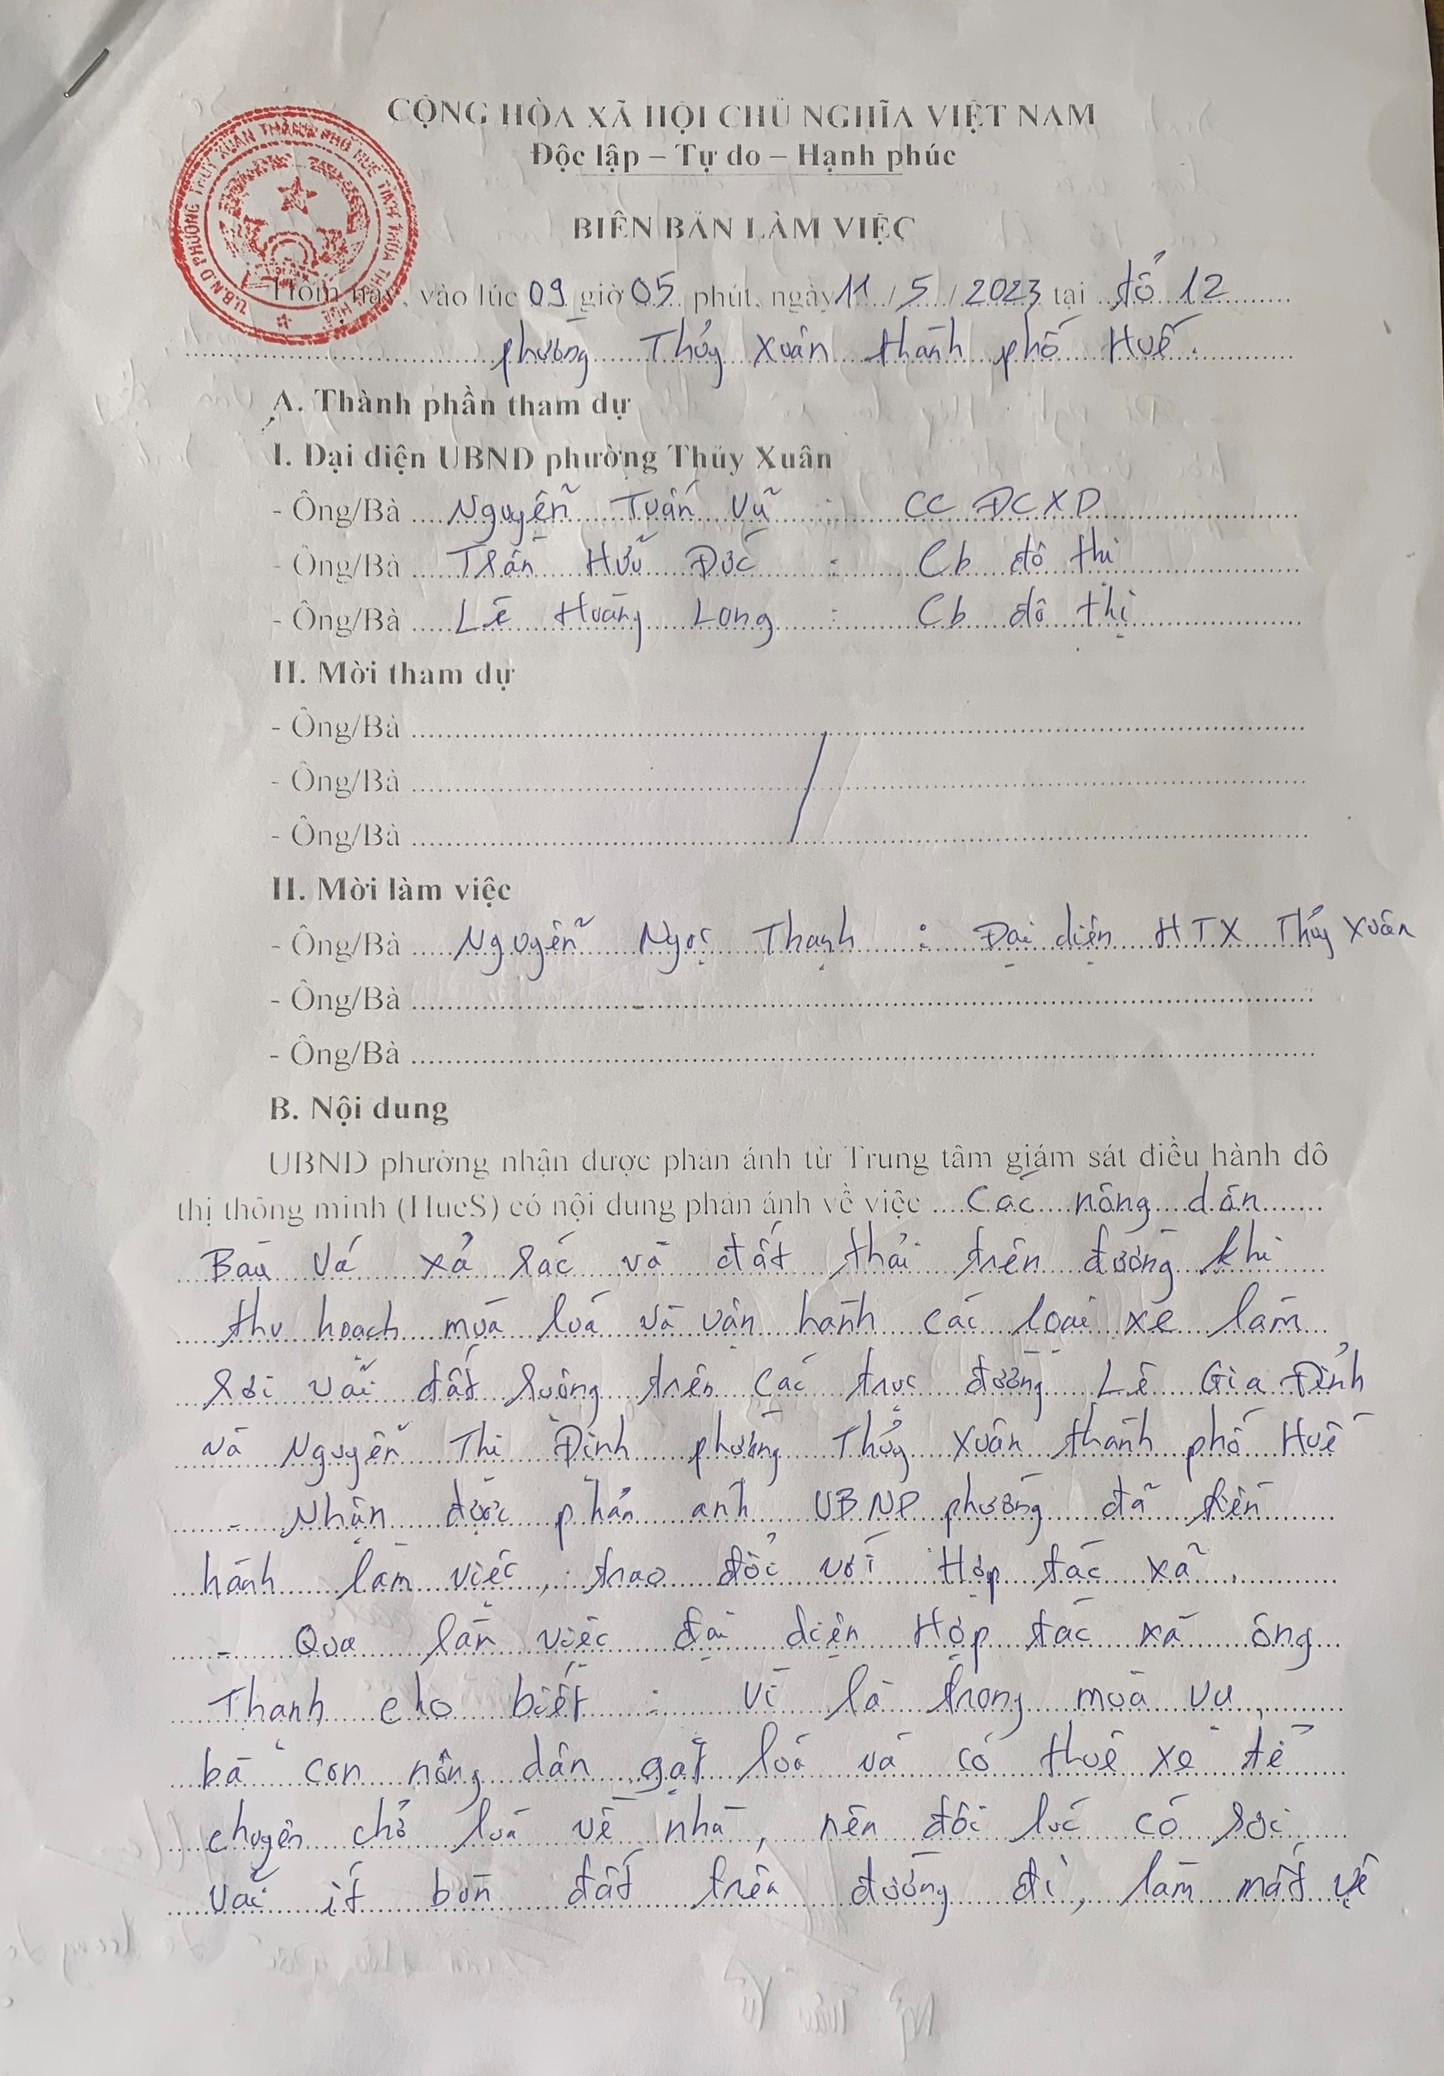 CỘNG HÒA XÃ HỘI CHỦ NGHĨA VIỆT NAM
Độc lập – Tự do – Hạnh phúc
U.B.N.D PHƯỜNG THỦY XUÂN THÀNH PHỐ HUẾ TỈNH THỪA THIÊN HUẾ
BIÊN BẢN LÀM VIỆC
Hôm nay, vào lúc 09 giờ 05 phút, ngày 11 / 5 / 2023 tại tổ 12
phường Thủy Xuân thành phố Huế.
A. Thành phần tham dự
I. Đại diện UBND phường Thủy Xuân
- Ông/Bà Nguyễn Tuấn Vũ : CC ĐCXD
- Ông/Bà Trần Hữu Đức : Cb đô thị
- Ông/Bà Lê Hoàng Long : Cb đô thị
II. Mời tham dự
- Ông/Bà
- Ông/Bà
- Ông/Bà
II. Mời làm việc
- Ông/Bà Nguyễn Ngọc Thạnh : Đại diện HTX Thủy Xuân
- Ông/Bà
- Ông/Bà
B. Nội dung
UBND phường nhận được phản ánh từ Trung tâm giám sát điều hành đô
thị thông minh (HueS) có nội dung phản ánh về việc Các nông dân
Bàu Vá xả rác và đất thải trên đường khi
thu hoạch mùa lúa và vận hành các loại xe làm
rơi vãi đất ruộng trên các trục đường Lê Gia Đỉnh
và Nguyễn Thị Định phường Thủy Xuân thành phố Huế
- Nhận được phản ánh UBND phường đã tiến
hành làm việc, trao đổi với Hợp tác xã.
- Qua làm việc đại diện Hợp tác xã ông
Thạnh cho biết : Vì là trong mùa vụ,
bà con nông dân gặt lúa và có thuê xe để
chuyên chở lúa về nhà, nên đôi lúc có rơi
vãi ít bùn đất trên đường đi, làm mất vẻ